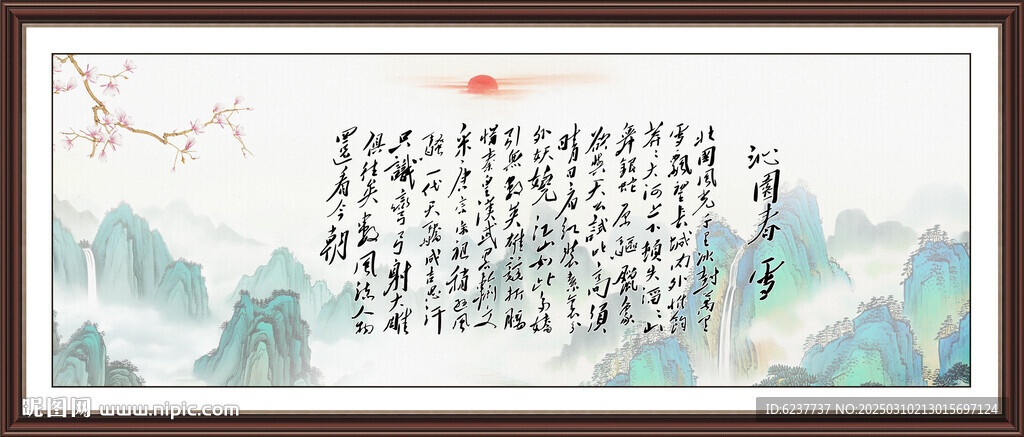 沁園春 雪
北國風光千里冰封萬里
雪飄望長城內外惟餘
莽〻大河上下頓失滔〻山
舞銀蛇原馳蠟象
欲與天公試比高須
晴日看紅裝素裹分
外妖嬈江山如此多嬌
引無數英雄競折腰
惜秦皇漢武略輸文
采唐宗宋祖稍遜風
騷一代天驕成吉思汗
只識彎弓射大雕
俱往矣數風流人物
還看今朝
昵图网 www.nipic.com
ID:6237737 NO:20250310213015697124